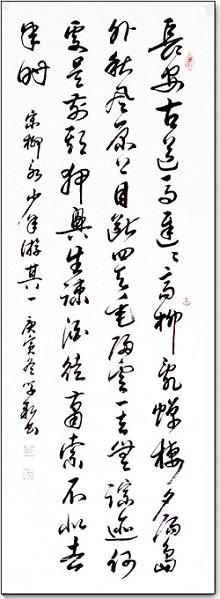 長安古道馬遲遲高柳亂蟬棲夕陽島
外秋風原上目斷四天垂歸雲一去無踪迹何
處是前期狎興生疎酒徒蕭索不似去
年時 宋柳永少年游其一 庚寅冬